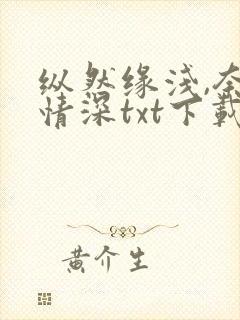 纵然缘浅,奈
情深txt下载
黄介生